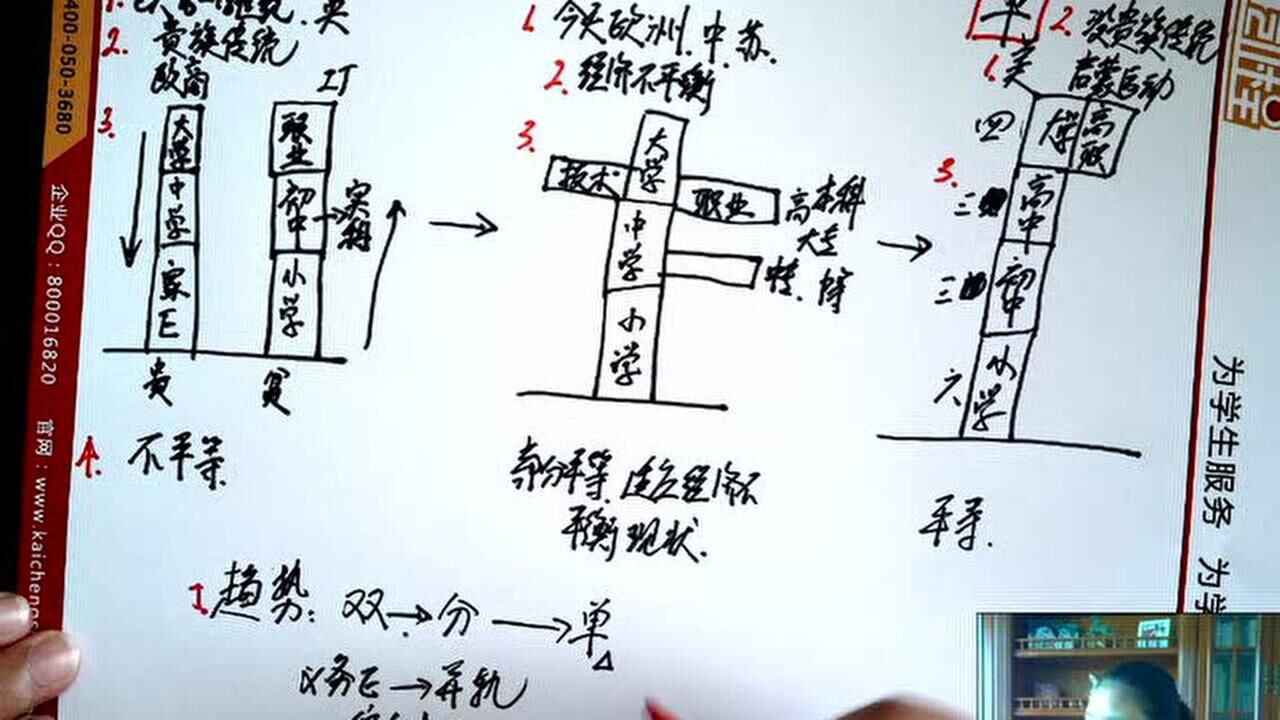 2. 贵族传统
欧商
3.
大学
中学
家
贵
职业
初中
小学
不平等
1. 今天欧洲、中、苏.
2. 经济不平衡
3.
大学
技术
职业
高本科
大专
中学
小学
部分平等, 适应经济不
平衡现状.
2. 没贵族传统
启蒙运动
1. 美
3.
四
大学
高职
三
高中
三
初中
六
小学
平等.
趋势: 双→分→单
义务→并轨
400-050-3680
企业QQ:800016820
官网:www.kaicheng
为学生服务 为学